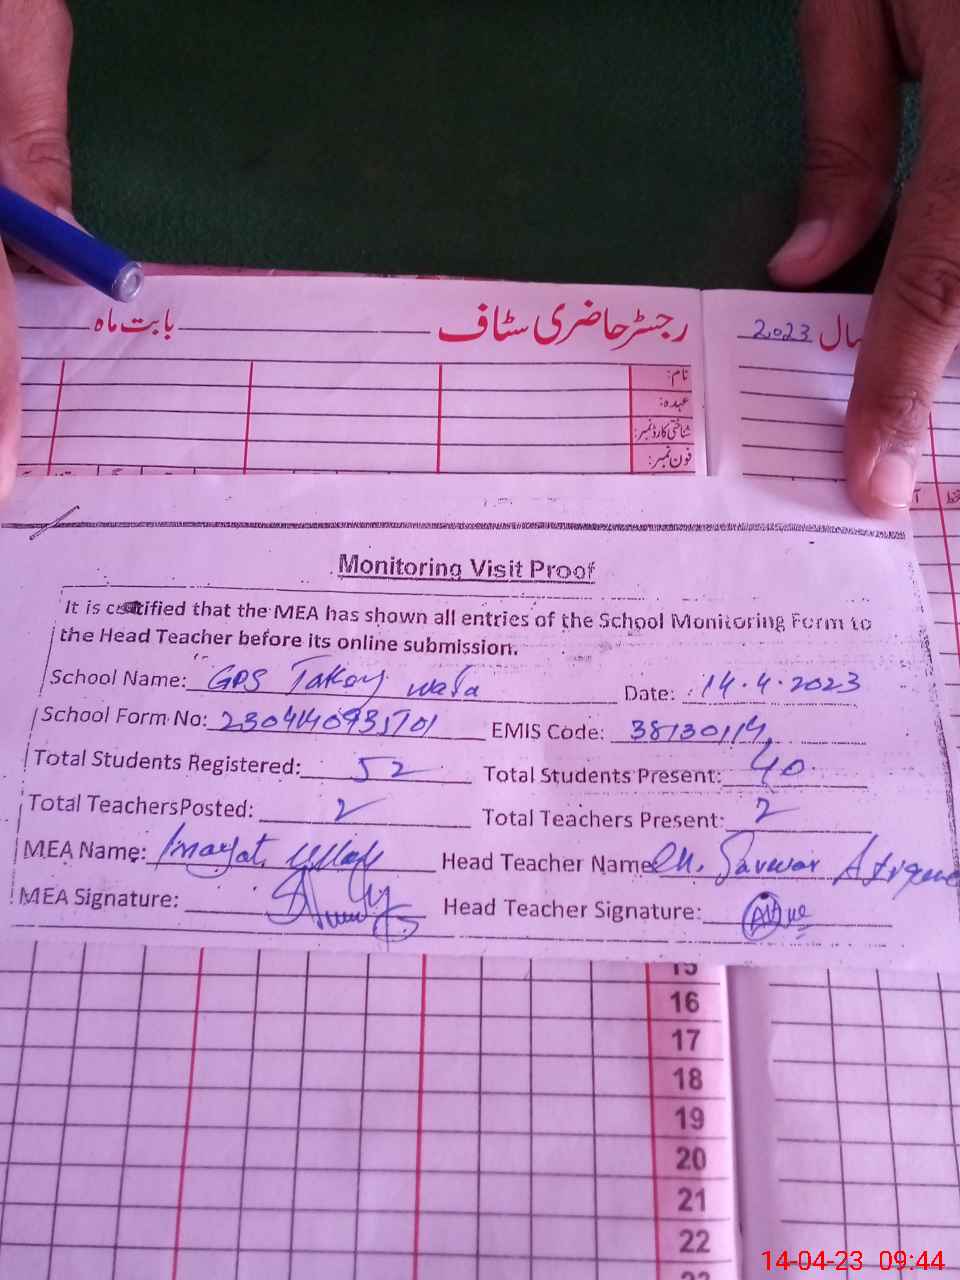 رجسٹر حاضری سٹاف بابت ماہ
سال 2023
نام:
عہدہ:
شناختی کارڈ نمبر:
فون نمبر:
Monitoring Visit Proof
It is certified that the MEA has shown all entries of the School Monitoring Form to
the Head Teacher before its online submission.
School Name: GPS wala Date: 14.4.2023
School Form No: EMIS Code: 38130114
Total Students Registered: 52 Total Students Present: 40
Total TeachersPosted: 2 Total Teachers Present: 2
MEA Name: Inayat Ullah Head Teacher Name Ch. Sarwar
MEA Signature: Head Teacher Signature:
15
16
17
18
19
20
21
22
23
14-04-23 09:44